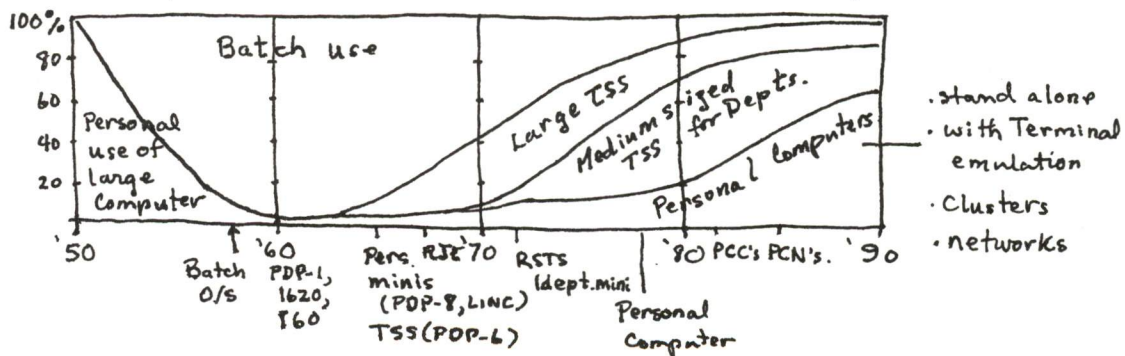 100%
80
60
40
20
Batch use
Personal
use of
large
Computer
Large TSS
Medium sized
TSS for Depts.
Personal Computers
• stand alone
• with Terminal
emulation
• Clusters
• networks
'50
'60
'70
'80
'90
Batch
O/S
PDP-1,
1620,
160
Pers.
minis
(PDP-8, LINC)
TSS (PDP-6)
RJE
RSTS
(dept. mini
Personal
Computer
PCC's
PCN's.